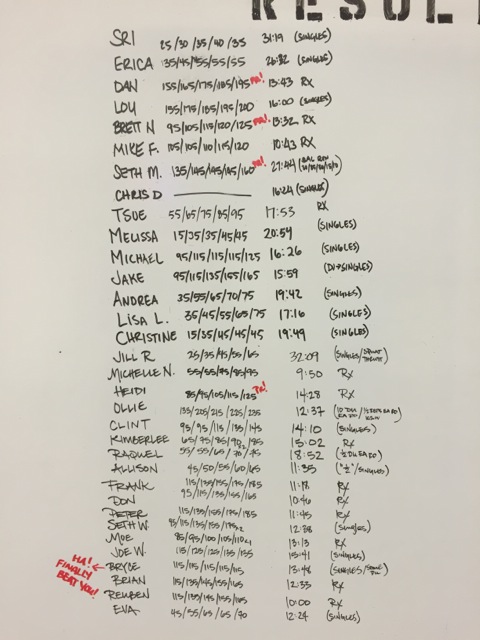 RESUL
SRI 25/30/35/40/35 31:19 (SINGLES)
ERICA 135/45/45/55/55 (SINGLES)
DAN 155/165/175/185/195 PR! 13:43 RX
LOU 155/175/185/195/200 16:00 (SINGLES)
BRETT N 95/105/115/120/125 PR! 13:32 RX
MIKE F. 105/105/110/115/120 10:43 RX
SETH M. 135/145/145/145/160 PR! 27:44
CHRIS D 16:24 (SINGLES)
TSUE 55/65/75/85/95 17:53 RX
MELISSA 15/35/35/45/45 20:54 (SINGLES)
MICHAEL 95/115/115/115/125 16:26 (SINGLES)
JAKE 95/115/135/155/165 15:59 (DU+SINGLES)
ANDREA 35/55/65/70/75 19:42 (SINGLES)
LISA L. 35/45/55/65/75 17:16 (SINGLES)
CHRISTINE 15/35/45/45/45 19:49 (SINGLES)
JILL R 25/35/45/55/65 32:09 (SINGLES/
MICHELLE N. 55/55/75/85/95 9:50 RX
HEIDI 85/95/105/115/125 PR! 14:28 RX
OLLIE 185/205/215/225/235 12:37
CLINT 95/95/115/135/145 14:10 (SINGLES)
KIMBERLEE 65/75/85/90/85 15:02 RX
RAQUEL 55/55/65/70/75 18:52
ALLISON 45/50/55/60/65 11:35 ("½"/SINGLES)
FRANK 115/135/155/175/185 11:18 RX
DON 95/115/135/155/165 10:46 RX
PETER 115/135/155/175/185 11:45 RX
SETH W. 95/115/135/155/175 12:38 (SINGLES)
MOE 85/95/100/105/110 13:13 RX
JOE W. 115/125/125/135/155 15:41 (SINGLES)
HA! FINALLY BEAT YOU! ← BRYCE 115/115/115/115/115 13:48 (SINGLES/
BRIAN 115/135/145/155/165 12:35 RX
REUBEN 115/135/145/155/165 10:00 RX
EVA 45/55/65/65/70 12:24 (SINGLES)